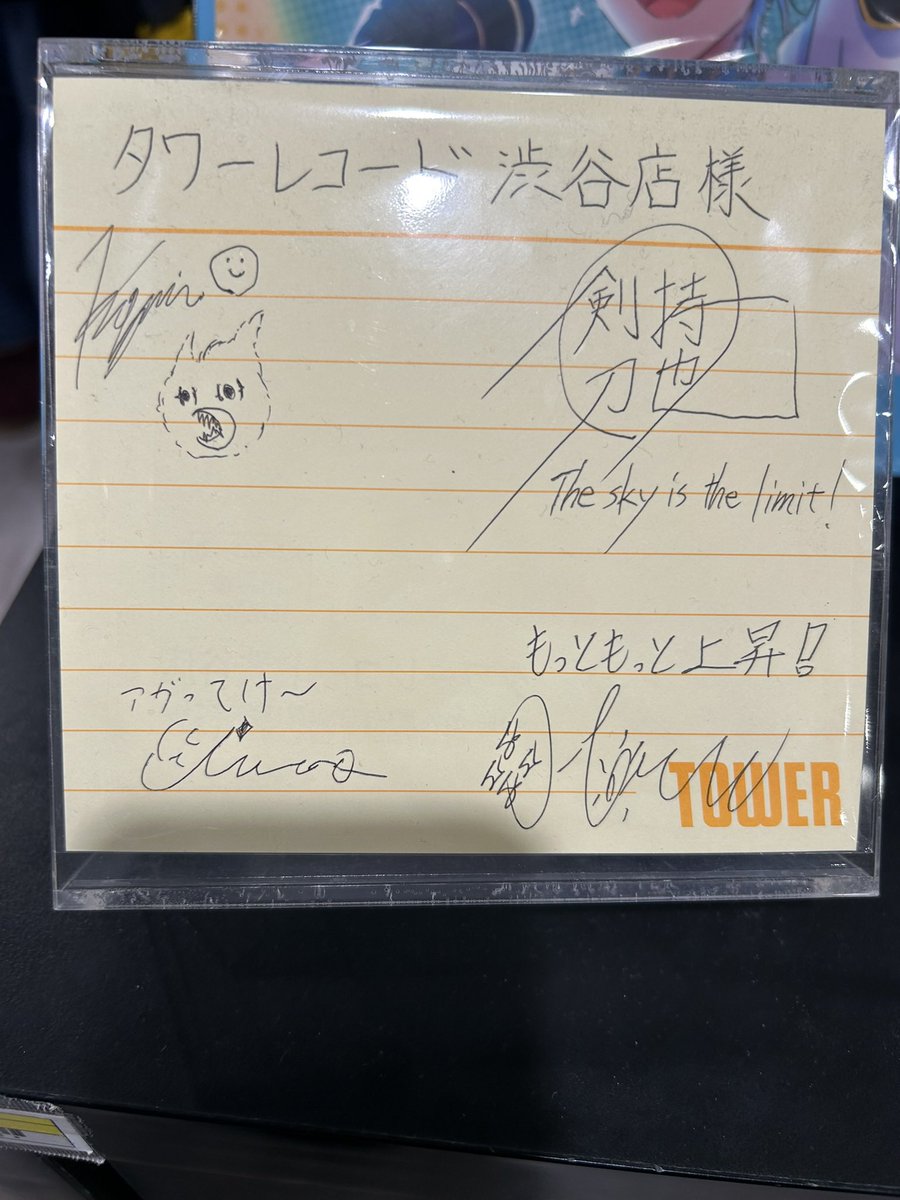 タワーレコード 渋谷店様
剣持
刀也
The sky is the limit!
もっともっと上昇!!
アガってけ〜
TOWER